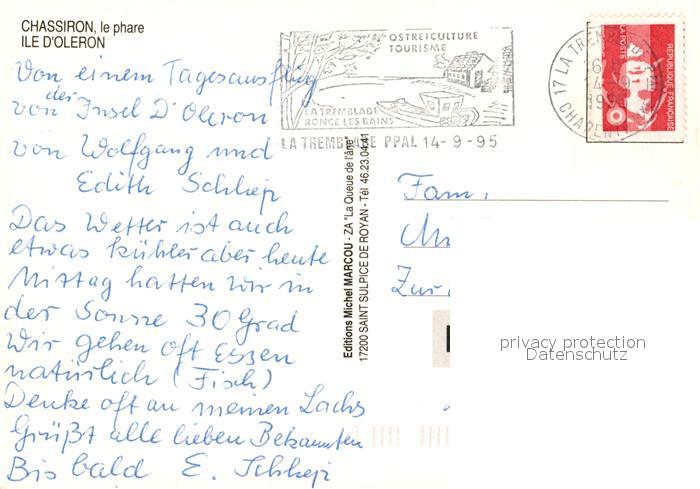 CHASSIRON, le phare
ILE D'OLERON
Von einem Tagesausflug
von der Insel D'Oleron
von Wolfgang und
Edith Schkep
Das Wetter ist auch
etwas kühler aber heute
Mittag hatten wir in
der Sonne 30 Grad
Wir gehen oft Essen
natürlich (Fisch)
Denke oft an meinen Lachs
Grüßt alle lieben Bekannten
Bis bald E. Schkep
OSTREICULTURE
TOURISME
LA TREMBLADE
RONCE LES BAINS
LA TREMBLADE PPAL 14-9-95
17 LA TREMBLADE
CHARENTE
LA POSTE
REPUBLIQUE FRANÇAISE
Editions Michel MARCOU - ZA "La Queue de l'âne"
17200 SAINT SULPICE DE ROYAN - Tél 46.23.04.41
Fam.
privacy protection
Datenschutz